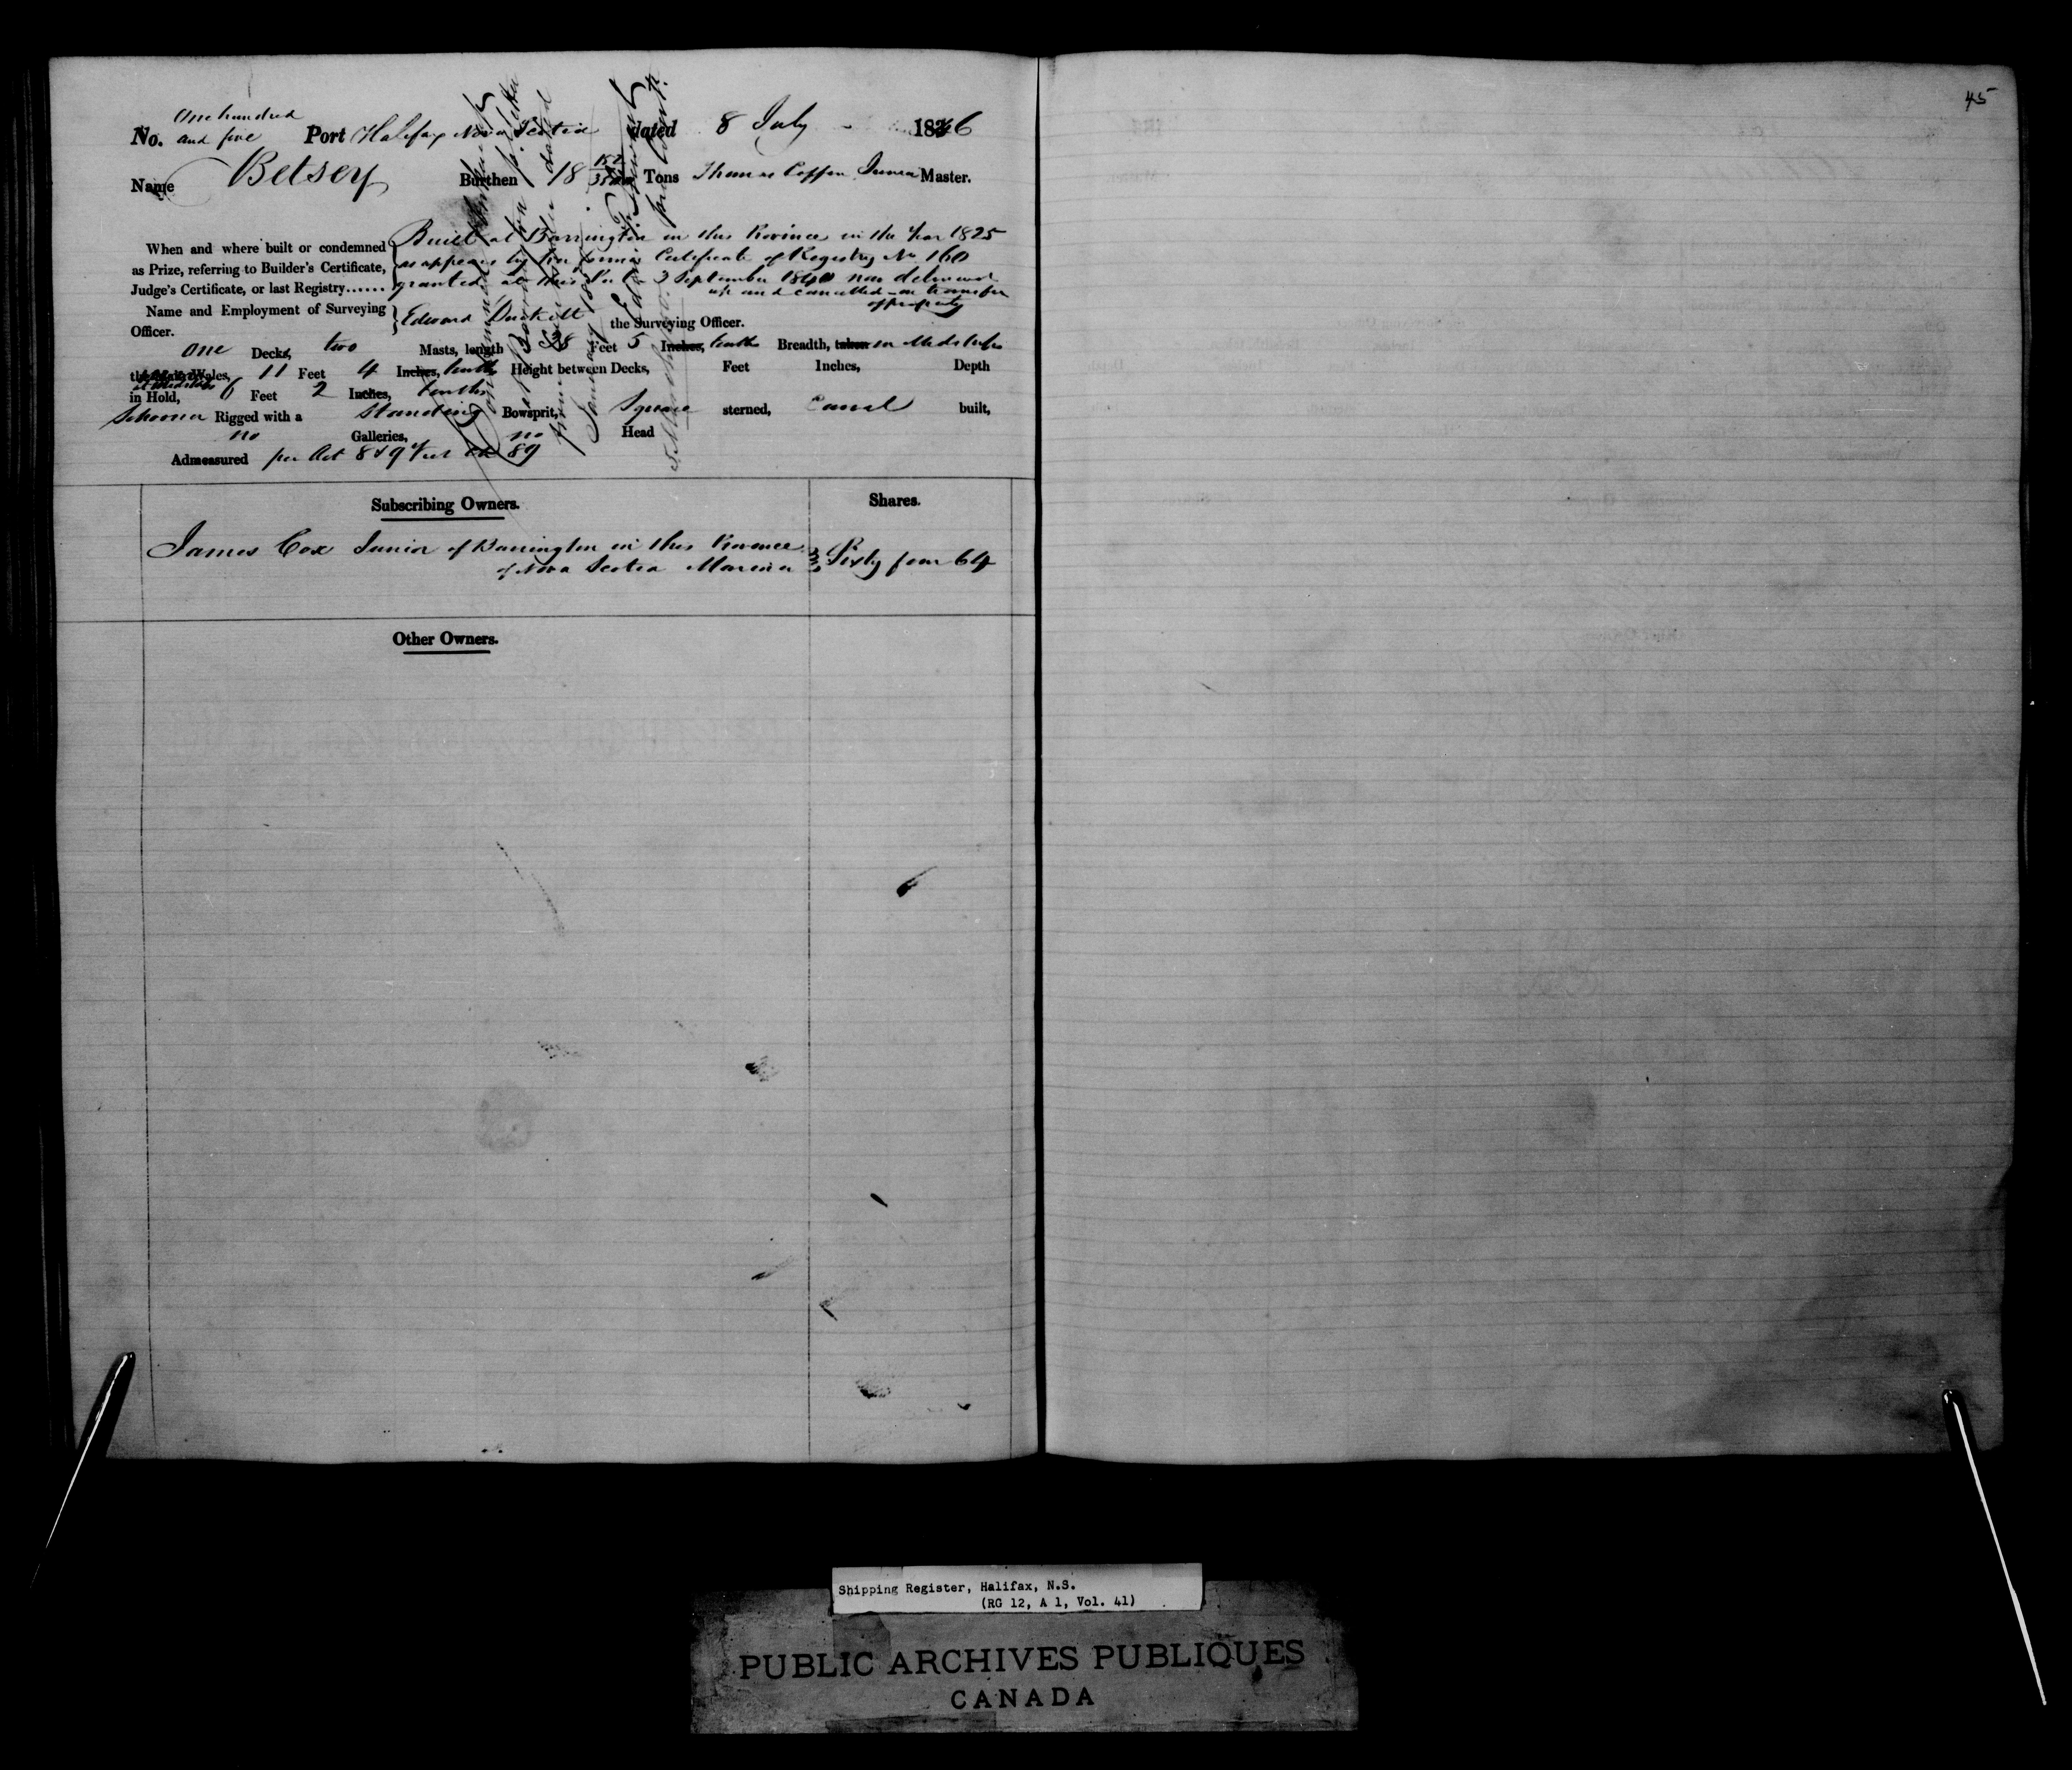 45
No. One hundred and five Port Halifax Nova Scotia dated 8 July 1846
Name Betsey Burthen 18 Tons Thomas Coffin Junior Master.
When and where built or condemned as Prize, referring to Builder's Certificate, Judge's Certificate, or last Registry......
Built at Barrington in this Province in the Year 1825
as appears by her former Certificate of Registry No 160
granted at this Port 3 September 1840 now delivered
up and cancelled on transfer
of property
Name and Employment of Surveying Officer.
Edward Duckett the Surveying Officer.
One Decks, two Masts, length 38 Feet 5 Inches, tenths Breadth, taken in Midships
the Main Wales, 11 Feet 4 Inches, tenths Height between Decks, Feet Inches, Depth
in Hold, at Midships 6 Feet 2 Inches, tenths
Schooner Rigged with a Standing Bowsprit, Square sterned, Carvel built,
no Galleries, no Head
Admeasured per Act 8 & 9 Vict Ch 89
Subscribing Owners.
Shares.
James Cox Junior of Barrington in this Province
of Nova Scotia Mariner
Sixty four 64
Other Owners.
Shipping Register, Halifax, N.S.
(RG 12, A 1, Vol. 41)
PUBLIC ARCHIVES PUBLIQUES
CANADA